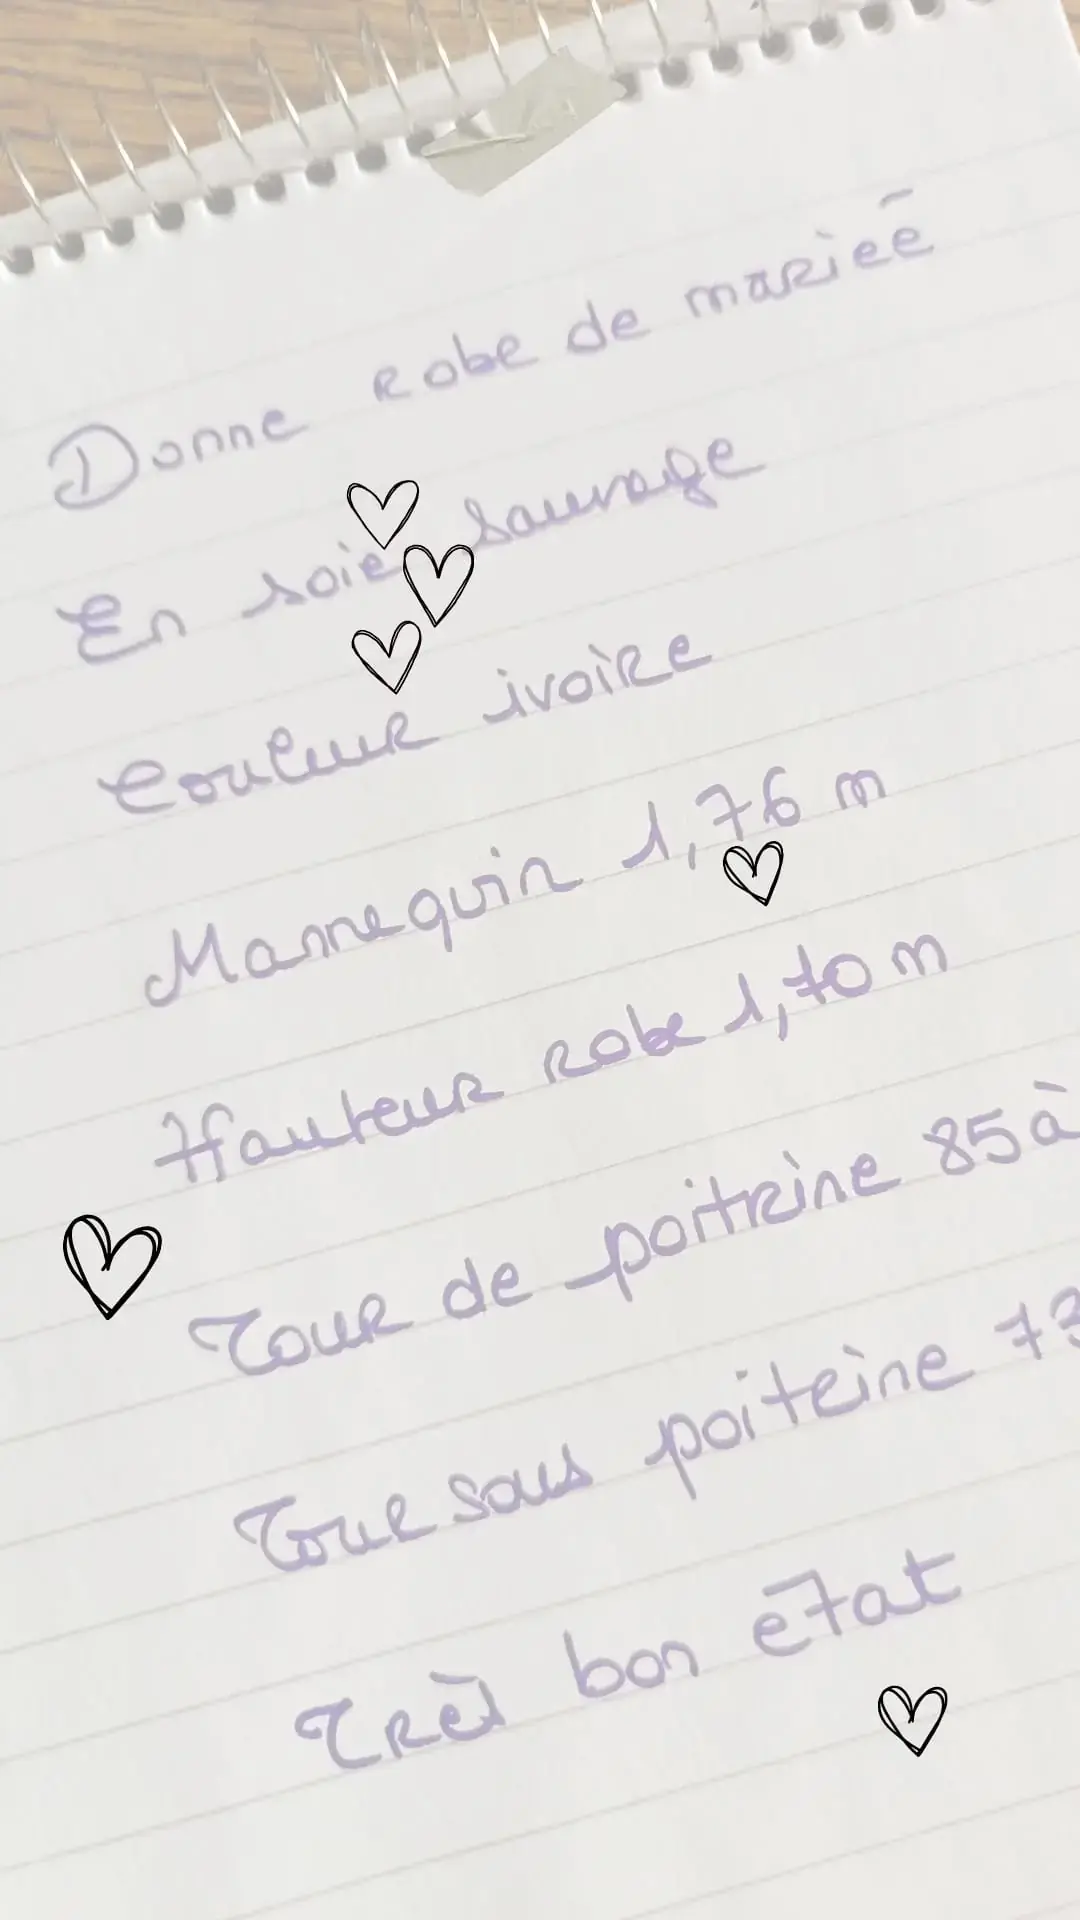 Donne robe de mariée
En soie sauvage
Couleur ivoire
Mannequin 1,76 m
Hauteur robe 1,70 m
Tour de poitrine 85 à
Tour sous poitrine 73
Très bon état